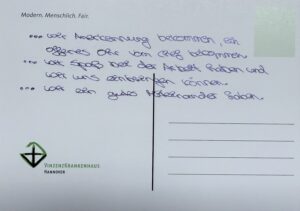 Modern. Menschlich. Fair.
... wir Anerkennung bekommen, ein
offenes Ohr vom Chef bekommen
... wir Spaß bei der Arbeit haben und
wir uns einbringen können.
... wir ein gutes Miteinander haben.
VINZENZKRANKENHAUS
HANNOVER